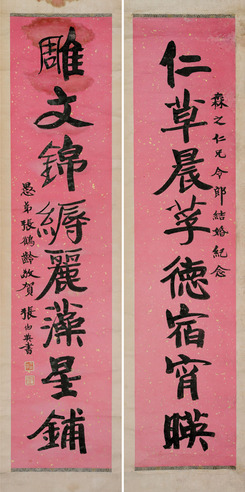 仁草晨莩德宿宵暎
森之仁兄令郎結婚紀念
雕文錦縟麗藻星鋪
愚弟張鶴齡敬賀
張伯英書